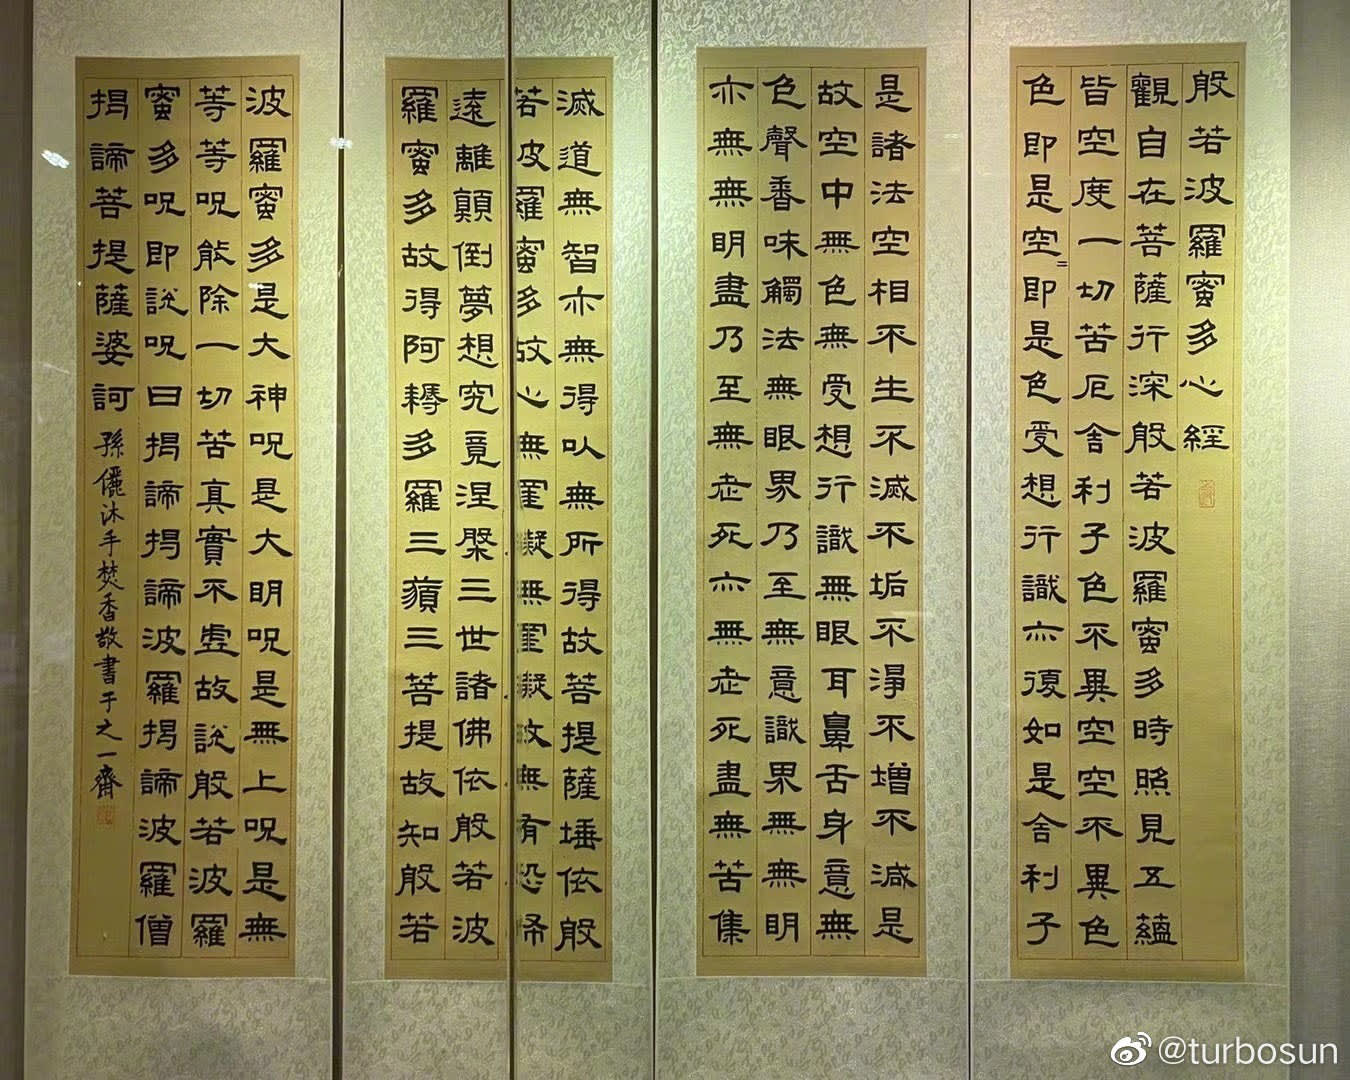 般若波羅蜜多心經
觀自在菩薩行深般若波羅蜜多時照見五蘊
皆空度一切苦厄舍利子色不異空空不異色
色即是空〻即是色受想行識亦復如是舍利子
是諸法空相不生不滅不垢不淨不增不減是
故空中無色無受想行識無眼耳鼻舌身意無
色聲香味觸法無眼界乃至無意識界無無明
亦無無明盡乃至無老死亦無老死盡無苦集
滅道無智亦無得以無所得故菩提薩埵依般
若波羅蜜多故心無罣礙無罣礙故無有恐怖
遠離顛倒夢想究竟涅槃三世諸佛依般若波
羅蜜多故得阿耨多羅三藐三菩提故知般若
波羅蜜多是大神呪是大明呪是無上呪是無
等等呪能除一切苦真實不虛故說般若波羅
蜜多呪即說呪曰揭諦揭諦波羅揭諦波羅僧
揭諦菩提薩婆訶 孫儷沐手焚香敬書于之一齋
@turbosun